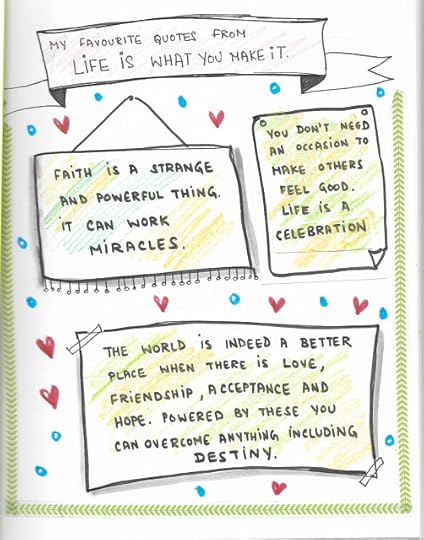 MY FAVOURITE QUOTES FROM
LIFE IS WHAT YOU MAKE IT.
FAITH IS A STRANGE
AND POWERFUL THING.
IT CAN WORK
MIRACLES.
YOU DON'T NEED
AN OCCASION TO
MAKE OTHERS
FEEL GOOD.
LIFE IS A
CELEBRATION
THE WORLD IS INDEED A BETTER
PLACE WHEN THERE IS LOVE,
FRIENDSHIP, ACCEPTANCE AND
HOPE. POWERED BY THESE YOU
CAN OVERCOME ANYTHING INCLUDING
DESTINY.